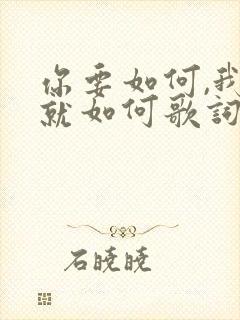 你要如何,我
就如何歌詞
石曉曉